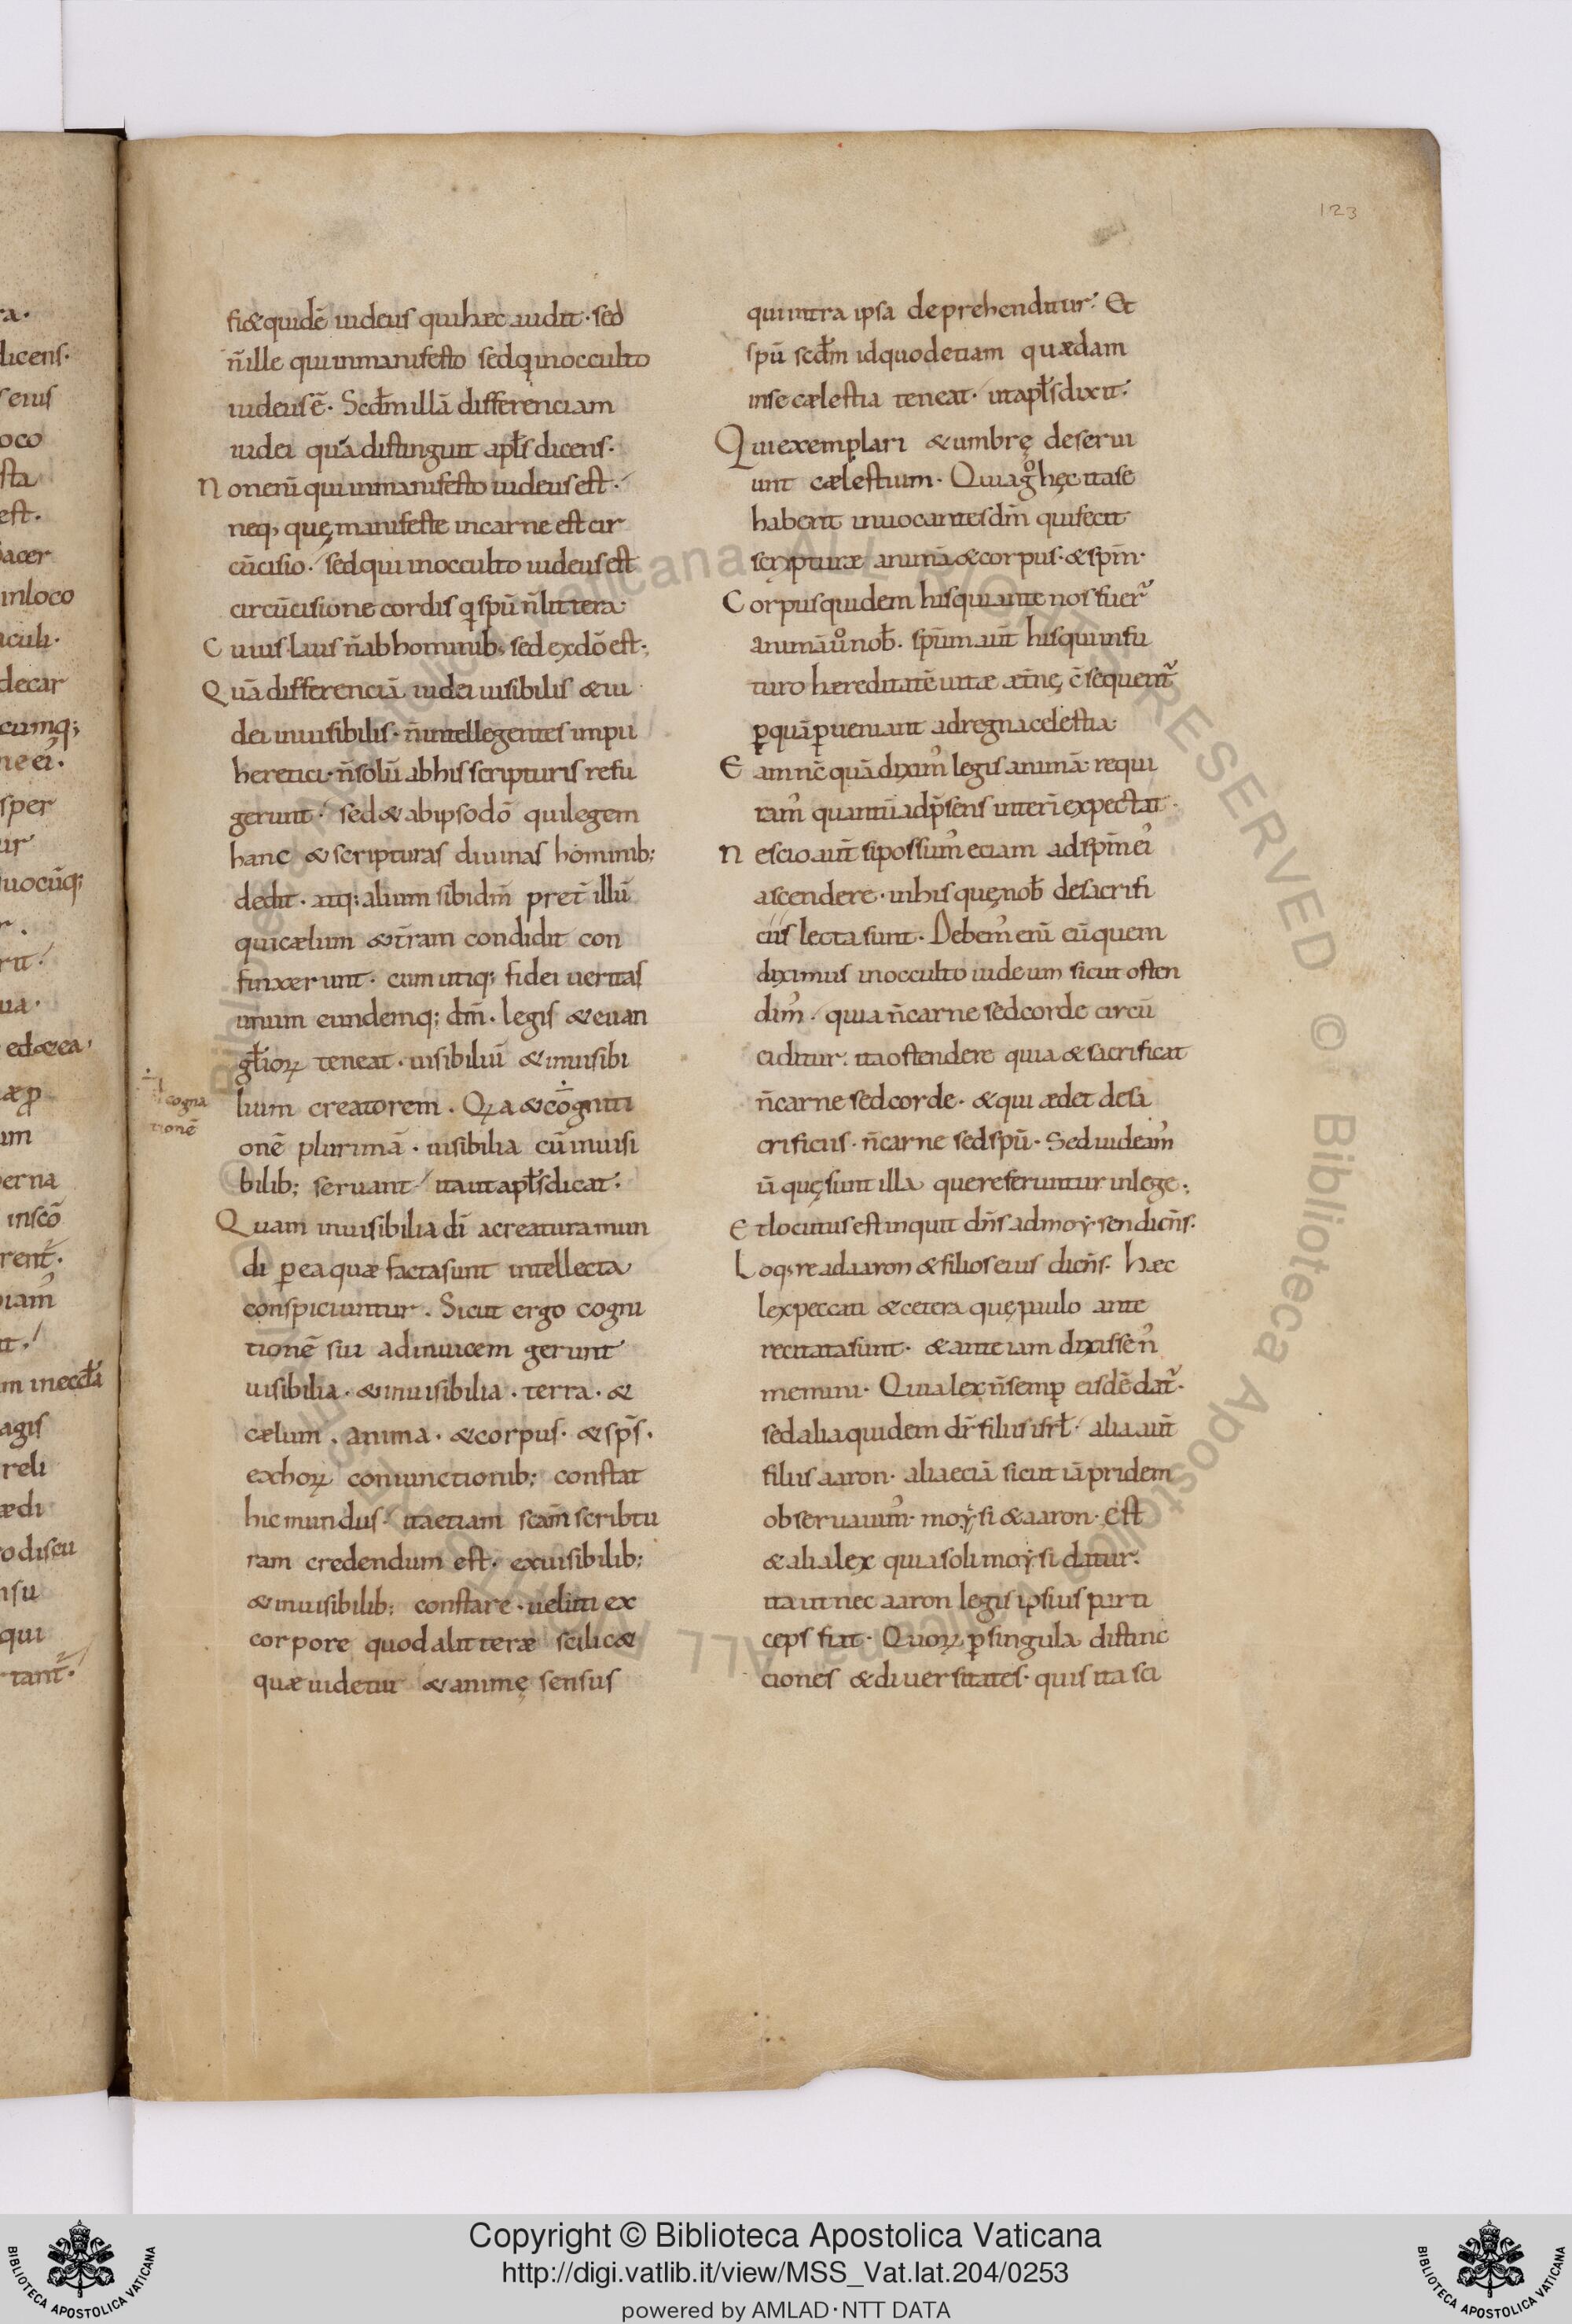 123
fi&quidē iudeus quihæc audit · sed
n̄ille quiinmanifesto sedq̣inocculto
iudeusē · Scd̄m illā differenciam
iudei quā distinguit apƚs dicens ·
Noneni̅ quiinmanifesto iudeusest ·
neq, quęmanifeste incarne est cir
cūcisio · sedqui inocculto iudeusest
circūcisione cordis q̣ spū n̄littera ·
Cuius laus n̄ab hominib; sed exdō est ·,
Quā differenciā iudei uisibilis &iu
dei inuisibilis · n̄intellegentes impii
heretici · n̄solū abhis scripturis refu
gerunt · sed&abipsodō quilegem
hanc & scripturas diuinas hominib;
dedit · atq; alium sibidm̄ pret̄ illū
quicælum &tr̄am condidit con
finxerunt · cum utiq; fidei ueritas
unum eundemq; dm̄ · legis &euan
gƚioꝝ teneat · uisibiliū &inuisibi
lium creatorem · Qꝛa &cogniti
cogna
tionē
onē plurimā · uisibilia cū inuisi
bilib; seruant itaut apƚs dicat ·
Quam inuisibilia dī acreatura mun
di ꝑ ea quæ facta sunt intellecta
conspiciuntur · Sicut ergo cogni
tionē sui adinuicem gerunt
uisibilia · &inuisibilia · terra · &
cælum · anima · &corpus · &sp̄s ·
exhoꝝ coniunctionib; constat
hic mundus · itaetiam scām scribtu
ram credendum est · exuisibilib;
&inuisibilib; constare · ueluti ex
corpore quodalitteræ scilic&
quæ uidetur &animę sensus
quiintra ipsa deprehenditur · Et
spū scd̄m idquodetiam quædam
inse cælestia teneat · ut apƚs dixit ·
Qui exemplari &umbrę deserui
unt cælestium · Quia gͦ hęc itase
habent inuocantes dm̄ quifecit
scripturæ animā &corpus · &spm̄ ·
Corpus quidem hisquiante nos fuer̄
animā uͦ nob̄ · spm̄ aut̄ hisquiinfu
turo hæreditatē uitæ æt̄nę c̄sequent̄
ꝑquā ꝑueniant adregna celestia ·
Eam nc̄ quā diximꝰ legis animā requi
ramꝰ quantū adp̄sens interī expectat ·
Nescio aut̄ sipossumꝰ eciam adspm̄ eiꝰ
ascendere · inhis quęnob̄ desacrifi
ciis lecta sunt · Debemꝰ eni̅ eū quem
diximus inocculto iudeum sicut osten
dimꝰ · quia n̄carne sedcorde circū
ciditur · ita ostendere quia &sacrificat
n̄carne sedcorde · &qui ædet desa
crificiis · n̄carne sedspū · Sed uideamꝰ
iā quęsunt illa quereferuntur inlege ·,
Etlocutus est inquit dn̄s ad moẏsen dicn̄s ·
Loq,re adaaron &filios eius dicn̄s · hæc
lexpeccati &cetera quępaulo ante
recitata sunt · &ante iam dixisse n̄
memini · Quia lex n̄semꝑ eisdē dat̄ ·
sed alia quidem dr̄ filiis isrƚ · alia aut̄
filiis aaron · alia eciā sicut iā pridem
obseruauimꝰ · moẏsi &aaron · est
&alia lex quia soli moẏsi datur ·
ita ut nec aaron legis ipsius parti
ceps fiat · Quoꝝ ꝑ singula distinc
ciones &diuersitates · quis ita sci
Copyright © Biblioteca Apostolica Vaticana
http://digi.vatlib.it/view/MSS_Vat.lat.204/0253
powered by AMLAD·NTT DATA
BIBLIOTECA APOSTOLICA VATICANA
BIBLIOTECA APOSTOLICA VATICANA